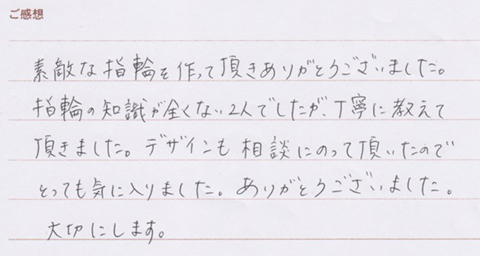 ご感想
素敵な指輪を作って頂きありがとうございました。
指輪の知識が全くない2人でしたが、丁寧に教えて
頂きました。デザインも相談にのって頂いたので
とっても気に入りました。ありがとうございました。
大切にします。